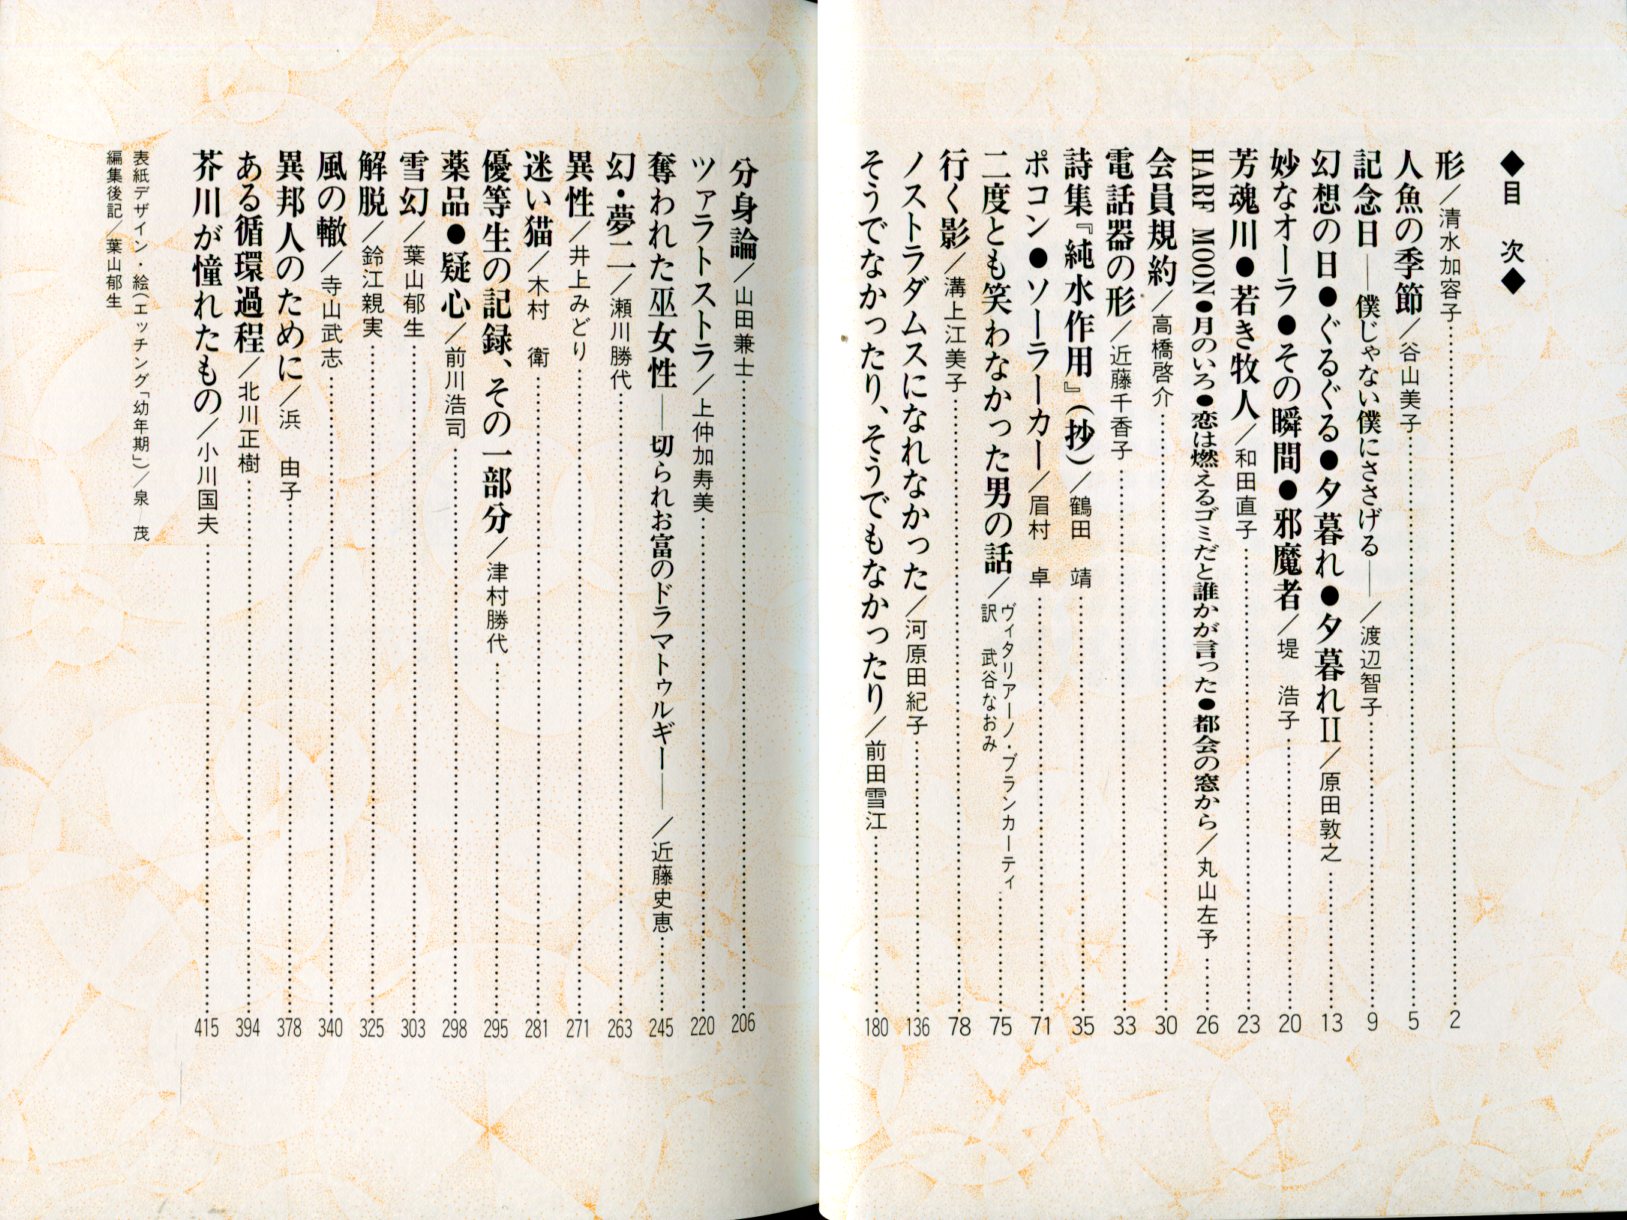 ◆目　次◆
形／清水加容子 2
人魚の季節／谷山美子 5
記念日──僕じゃない僕にささげる──／渡辺智子 9
幻想の日●ぐるぐる●夕暮れ●夕暮れⅡ／原田敦之 13
妙なオーラ●その瞬間●邪魔者／堤　浩子 20
芳魂川●若き牧人／和田直子 23
HARF MOON●月のいろ●恋は燃えるゴミだと誰かが言った●都会の窓から／丸山左予 26
会員規約／高橋啓介 30
電話器の形／近藤千香子 33
詩集『純水作用』（抄）／鶴田　靖 35
ポコン●ソーラーカー／眉村　卓 71
二度とも笑わなかった男の話／ヴィタリアーノ・ブランカーティ 訳　武谷なおみ 75
行く影／溝上江美子 78
ノストラダムスになれなかった／河原田紀子 136
そうでなかったり、そうでもなかったり／前田雪江 180
分身論／山田兼士 206
ツァラトストラ／上仲加寿美 220
奪われた巫女性──切られお富のドラマトゥルギー──／近藤史恵 245
幻・夢二／瀬川勝代 263
異性／井上みどり 271
迷い猫／木村　衛 281
優等生の記録、その一部分／津村勝代 295
薬品●疑心／前川浩司 298
雪幻／葉山郁生 303
解脱／鈴江親実 325
風の轍／寺山武志 340
異邦人のために／浜　由子 378
ある循環過程／北川正樹 394
芥川が憧れたもの／小川国夫 415
表紙デザイン・絵（エッチング「幼年期」）／泉　茂
編集後記／葉山郁生